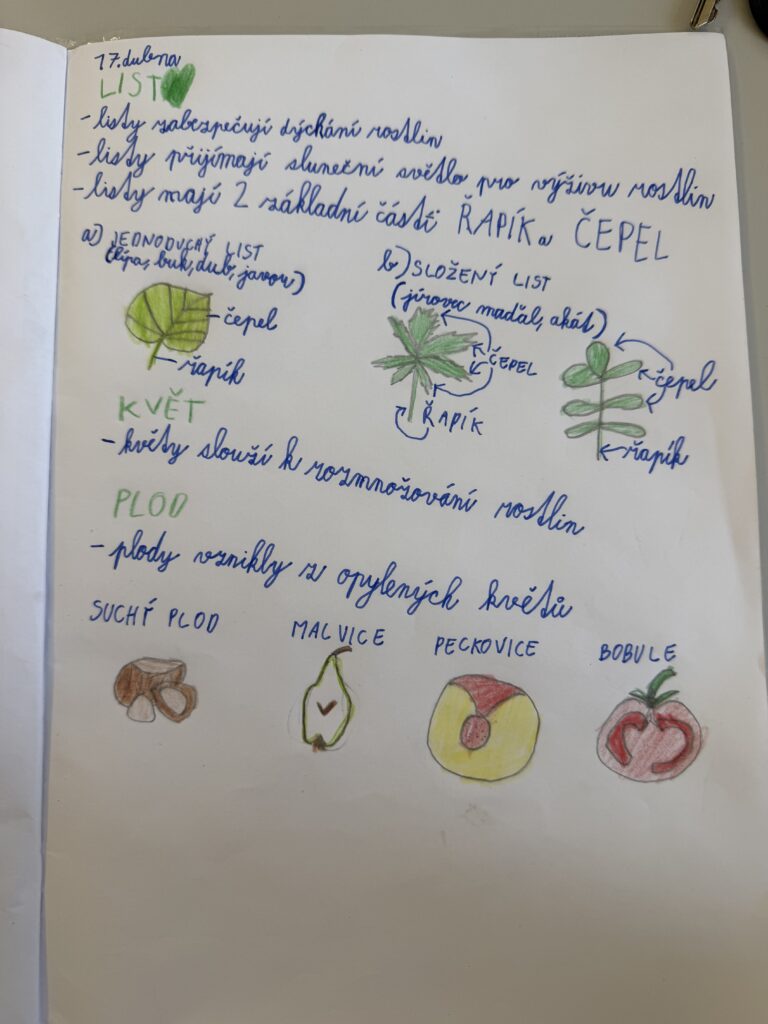 17. dubna
LIST
- listy zabezpečují dýchání rostlin
- listy přijímají sluneční světlo pro výživu rostlin
- listy mají 2 základní části ŘAPÍK a ČEPEL
a) JEDNODUCHÝ LIST
(lípa, buk, dub, javor)
čepel
řapík
b) SLOŽENÝ LIST
(jírovec maďal, akát)
ČEPEL
ŘAPÍK
čepel
řapík
KVĚT
- květy slouží k rozmnožování rostlin
PLOD
- plody vznikly z opylených květů
SUCHÝ PLOD
MALVICE
PECKOVICE
BOBULE